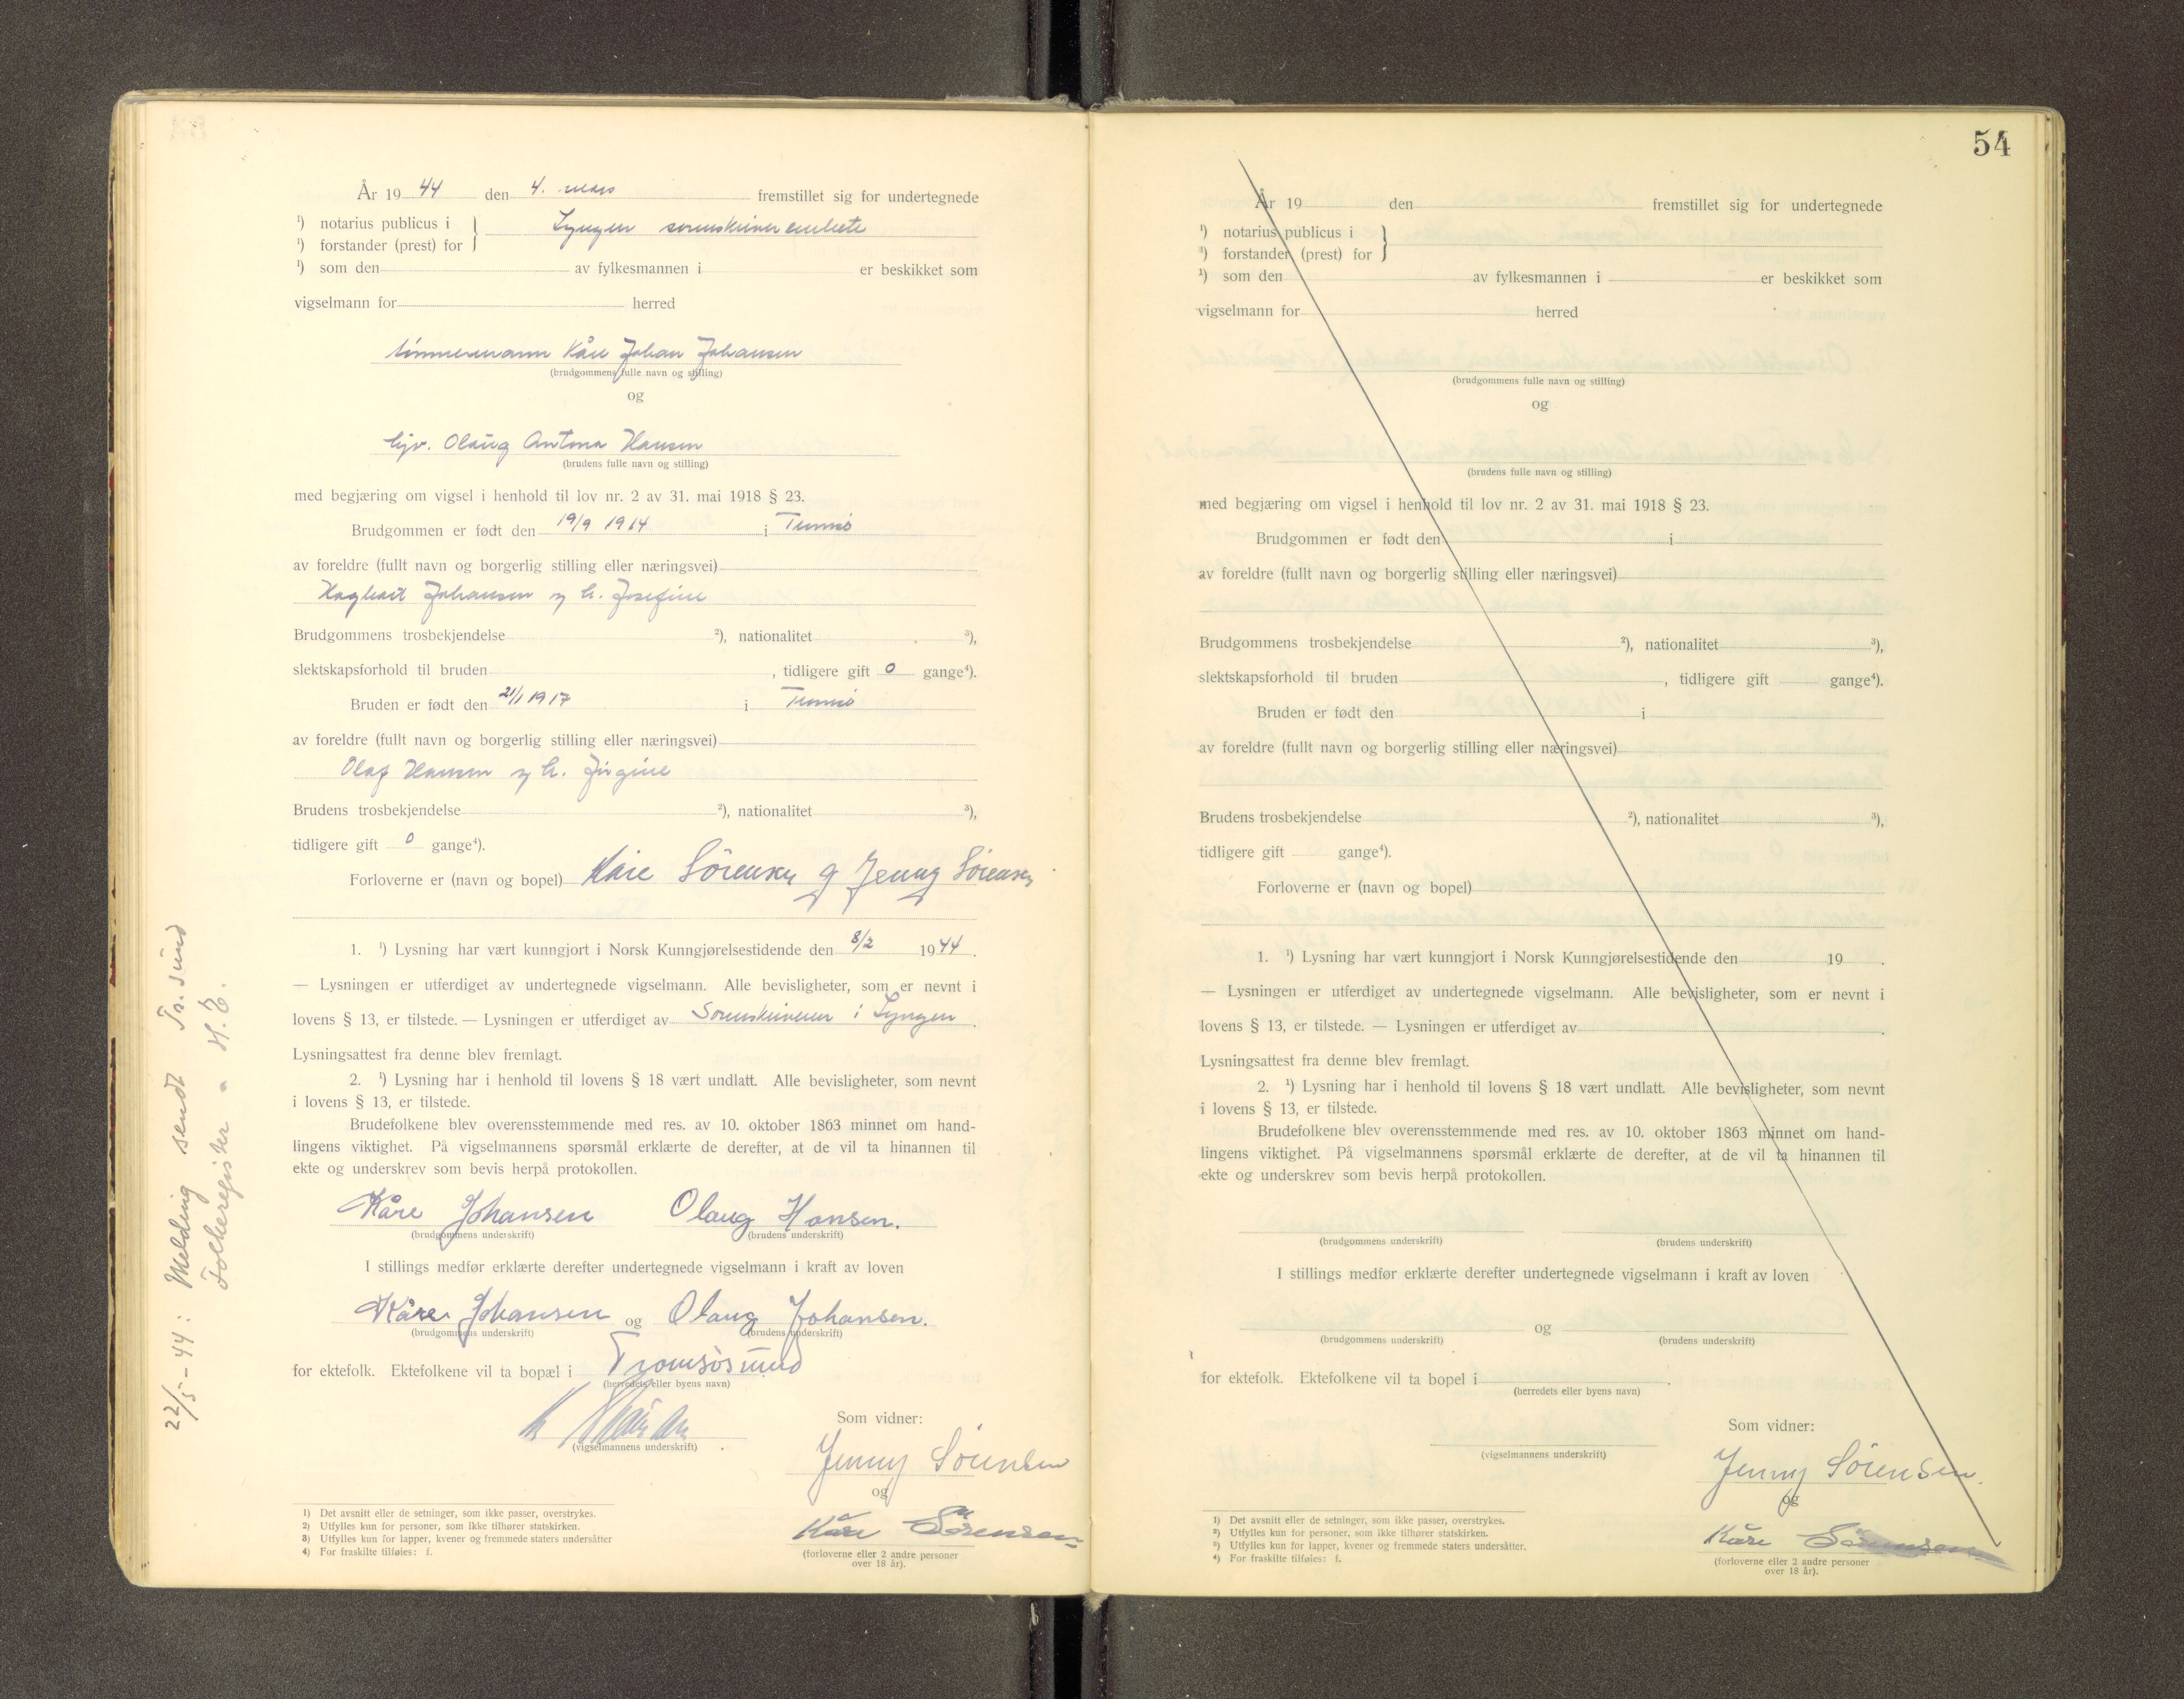 År 19 44 den 4. mars fremstillet sig for undertegnede
¹) notarius publicus i
¹) forstander (prest) for } Lyngen sorenskriverembete
¹) som den av fylkesmannen i er beskikket som
vigselmann for herred
tømmermann Kåre Johan Johansen
(brudgommens fulle navn og stilling)
og
hjv. Olaug Antona Hansen
(brudens fulle navn og stilling)
med begjæring om vigsel i henhold til lov nr. 2 av 31. mai 1918 § 23.
Brudgommen er født den 19/9 1914 i Tromsø
av foreldre (fullt navn og borgerlig stilling eller næringsvei)
Hagbart Johansen og h. Josefine
Brudgommens trosbekjendelse ²), nationalitet ³),
slektskapsforhold til bruden , tidligere gift 0 gange⁴).
Bruden er født den 21/1 1917 i Tromsø
av foreldre (fullt navn og borgerlig stilling eller næringsvei)
Olaf Hansen og h. Jørgine
Brudens trosbekjendelse ²), nationalitet ³),
tidligere gift 0 gange⁴).
Forloverne er (navn og bopel) Kåre Sörensen og Jenny Sörensen
1. ¹) Lysning har vært kunngjort i Norsk Kunngjørelsestidende den 8/2 1944.
— Lysningen er utferdiget av undertegnede vigselmann. Alle bevisligheter, som er nevnt i
lovens § 13, er tilstede. — Lysningen er utferdiget av Sorenskriveren i Lyngen.
Lysningsattest fra denne blev fremlagt.
2. ¹) Lysning har i henhold til lovens § 18 vært undlatt. Alle bevisligheter, som nevnt
i lovens § 13, er tilstede.
Brudefolkene blev overensstemmende med res. av 10. oktober 1863 minnet om hand-
lingens viktighet. På vigselmannens spørsmål erklærte de derefter, at de vil ta hinannen til
ekte og underskrev som bevis herpå protokollen.
Kåre Johansen Olaug Hansen.
(brudgommens underskrift) (brudens underskrift)
I stillings medfør erklærte derefter undertegnede vigselmann i kraft av loven
Kåre Johansen og Olaug Johansen.
(brudgommens underskrift) (brudens underskrift)
for ektefolk. Ektefolkene vil ta bopæl i Tromsøsund
(herredets eller byens navn)
(vigselmannens underskrift)
Som vidner:
Jenny Sörensen
og
Kåre Sörensen
(forloverne eller 2 andre personer
over 18 år).
1) Det avsnitt eller de setninger, som ikke passer, overstrykes.
2) Utfylles kun for personer, som ikke tilhører statskirken.
3) Utfylles kun for lapper, kvener og fremmede staters undersåtter
4) For fraskilte tilføies: f.
22/5-44: Melding sendt Tr.sund
Folkeregister - H.E.
54
År 19 den fremstillet sig for undertegnede
¹) notarius publicus i
¹) forstander (prest) for }
¹) som den av fylkesmannen i er beskikket som
vigselmann for herred
(brudgommens fulle navn og stilling)
og
(brudens fulle navn og stilling)
med begjæring om vigsel i henhold til lov nr. 2 av 31. mai 1918 § 23.
Brudgommen er født den i
av foreldre (fullt navn og borgerlig stilling eller næringsvei)
Brudgommens trosbekjendelse ²), nationalitet ³),
slektskapsforhold til bruden , tidligere gift gange⁴).
Bruden er født den i
av foreldre (fullt navn og borgerlig stilling eller næringsvei)
Brudens trosbekjendelse ²), nationalitet ³),
tidligere gift gange⁴).
Forloverne er (navn og bopel)
1. ¹) Lysning har vært kunngjort i Norsk Kunngjørelsestidende den 19 .
— Lysningen er utferdiget av undertegnede vigselmann. Alle bevisligheter, som er nevnt i
lovens § 13, er tilstede. — Lysningen er utferdiget av .
Lysningsattest fra denne blev fremlagt.
2. ¹) Lysning har i henhold til lovens § 18 vært undlatt. Alle bevisligheter, som nevnt
i lovens § 13, er tilstede.
Brudefolkene blev overensstemmende med res. av 10. oktober 1863 minnet om hand-
lingens viktighet. På vigselmannens spørsmål erklærte de derefter, at de vil ta hinannen til
ekte og underskrev som bevis herpå protokollen.
(brudgommens underskrift) (brudens underskrift)
I stillings medfør erklærte derefter undertegnede vigselmann i kraft av loven
og
(brudgommens underskrift) (brudens underskrift)
for ektefolk. Ektefolkene vil ta bopel i .
(herredets eller byens navn)
(vigselmannens underskrift)
Som vidner:
Jenny Sörensen.
og
Kåre Sörensen
(forloverne eller 2 andre personer
over 18 år).
1) Det avsnitt eller de setninger, som ikke passer, overstrykes.
2) Utfylles kun for personer, som ikke tilhører statskirken.
3) Utfylles kun for lapper, kvener og fremmede staters undersåtter.
4) For fraskilte tilføies: f.